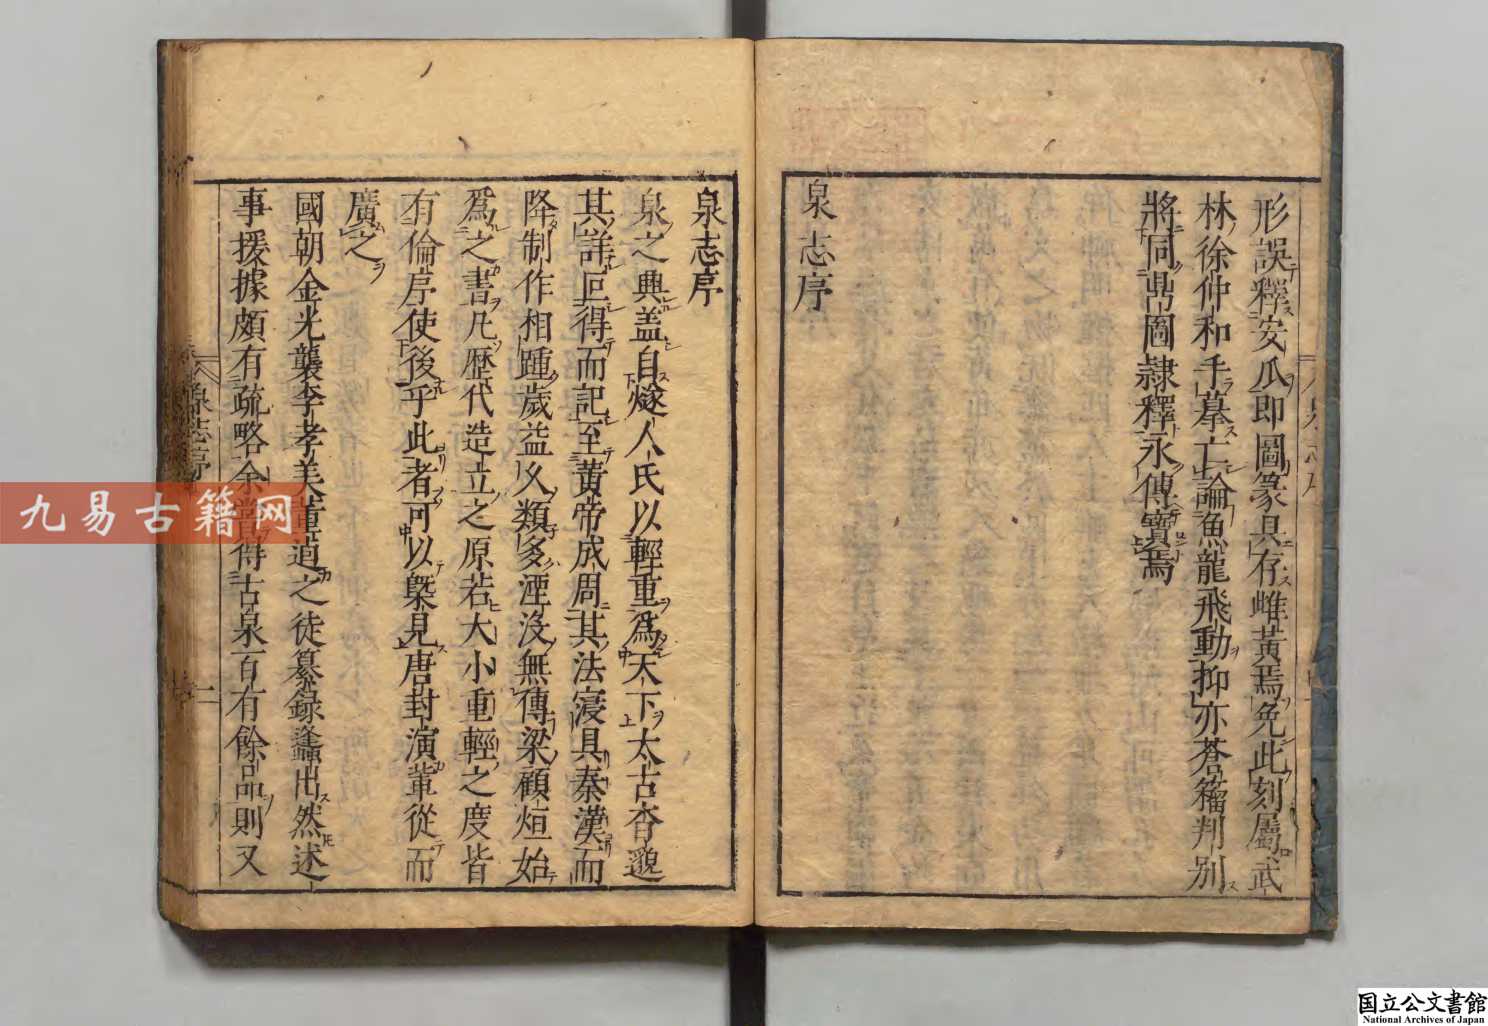 形誤釋安瓜即圖篆具存雌黃焉免此刻屬武
林徐仲和手摹亡論魚龍飛動抑亦蒼籀判別
將同鼎圖隷釋永傳寶焉
泉志序
泉志序
泉之興蓋自燧人氏以輕重爲天下太古杳邈
其詳叵得而記至黃帝成周其法寖具秦漢而
降制作相踵歲益久類多湮沒無傳梁顧烜始
爲之書凡歷代造立之原若大小重輕之度皆
有倫序使後乎此者可以槩見唐封演軰從而
廣之
國朝金光襲李孝美董逌之徒纂錄蠭出然述
事援據頗有疏略余嘗得古泉百有餘品則又
泉志序
九易古籍网
国立公文書館
National Archives of Japan